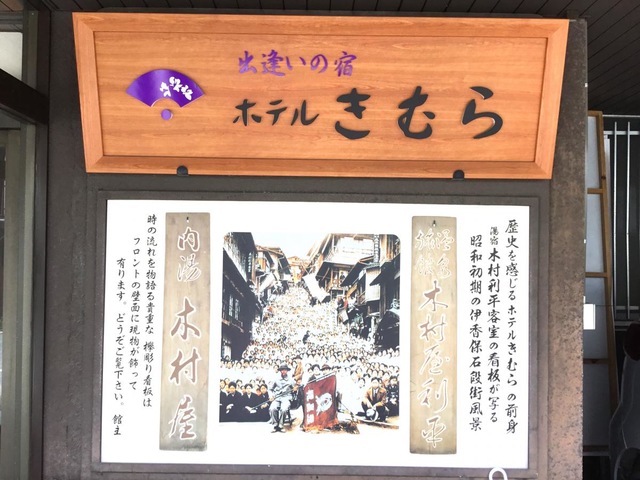 出逢いの宿
ホテル きむら
きむら
歴史を感じる ホテルきむら の前身
湯宿 木村利平客室の看板が写る
昭和初期の伊香保石段街風景
木村屋利平
内湯 木村屋
時の流れを物語る貴重な 欅彫り看板は
フロントの壁面に現物が飾って
有ります。どうぞご覧下さい。 館主